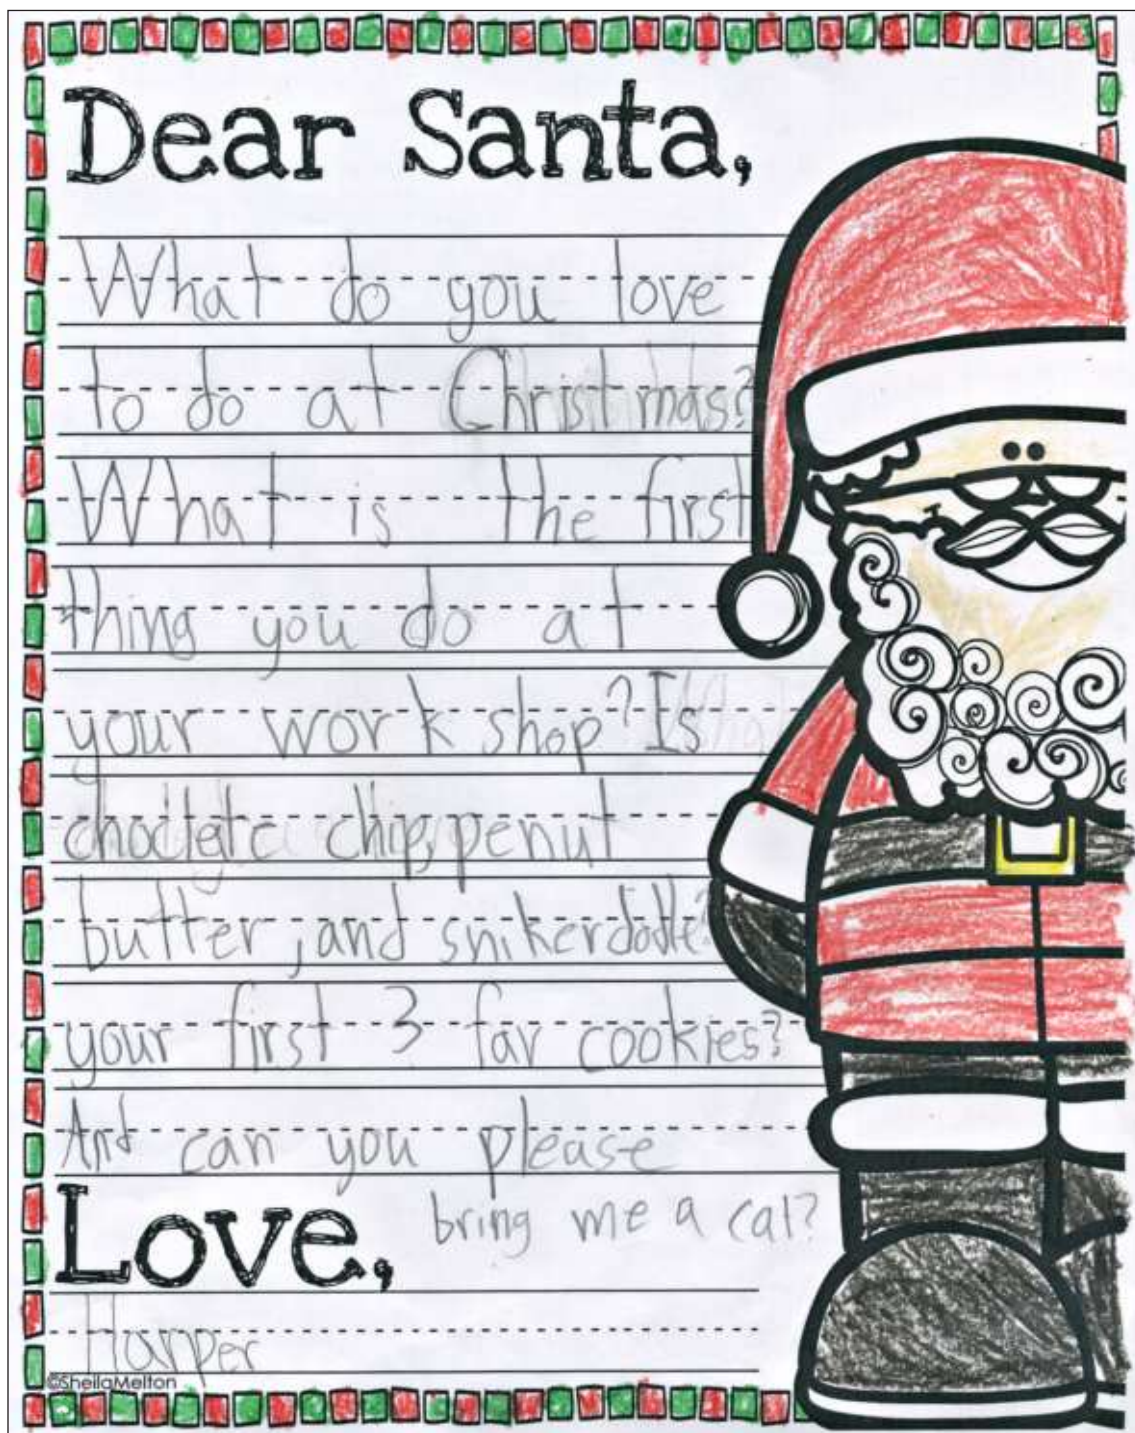 Dear Santa,
What do you love
to do at Christmas?
What is the first
thing you do at
your work shop? Is
choclate chip, penut
butter, and snikerdodle?
your first 3 fav cookies?
And can you please
Love, bring me a cat?
Harper
©SheilaMelton